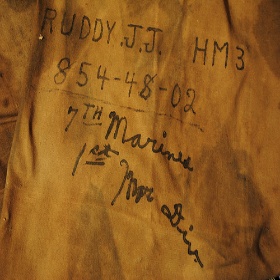 RUDDY. J.J. HM3
854-48-02
7TH Marines
1st Mar Div.